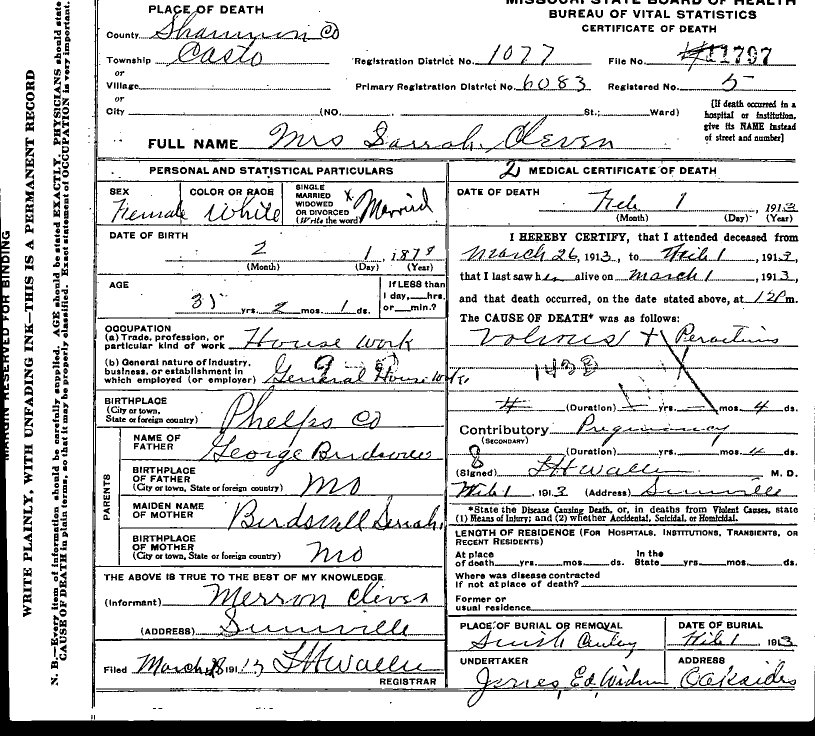 MISSOURI STATE BOARD OF HEALTH
BUREAU OF VITAL STATISTICS
CERTIFICATE OF DEATH
PLACE OF DEATH
County Shannon Co
Township Casto
or
Village
or
City (NO. St.; Ward)
Registration District No. 1077 File No. 11797
Primary Registration District No. 6083 Registered No. 5
[If death occurred in a
hospital or institution,
give its NAME instead
of street and number]
FULL NAME Mrs Sarrah Cleven
PERSONAL AND STATISTICAL PARTICULARS
SEX
Female
COLOR OR RACE
White
SINGLE
MARRIED
WIDOWED
OR DIVORCED
(Write the word)
X Married
DATE OF BIRTH
2 1, 1879
(Month) (Day) (Year)
AGE
35 yrs. 2 mos. 1 ds.
If LESS than
1 day, hrs.
or min.?
OCCUPATION
(a) Trade, profession, or
particular kind of work House work
(b) General nature of Industry,
business, or establishment in
which employed (or employer) General House work
BIRTHPLACE
(City or town,
State or foreign country) Phelps Co
PARENTS
NAME OF
FATHER George
BIRTHPLACE
OF FATHER
(City or town, State or foreign country) Mo
MAIDEN NAME
OF MOTHER Birdswell Serrah
BIRTHPLACE
OF MOTHER
(City or town, State or foreign country) Mo
THE ABOVE IS TRUE TO THE BEST OF MY KNOWLEDGE
(Informant) Merron Cleven
(ADDRESS)
Filed March 191
REGISTRAR
2 MEDICAL CERTIFICATE OF DEATH
DATE OF DEATH
Feb 1, 1913
(Month) (Day) (Year)
I HEREBY CERTIFY, that I attended deceased from
March 26, 1913, to 1, 1913,
that I last saw her alive on March 1, 1913,
and that death occurred, on the date stated above, at 12 P m.
The CAUSE OF DEATH* was as follows:
(Duration) yrs. mos. 4 ds.
Contributory Pregnancy
(SECONDARY)
(Duration) yrs. mos. 4 ds.
(Signed) M. D.
1, 1913 (Address)
*State the Disease Causing Death, or, in deaths from Violent Causes, state
(1) Means of Injury; and (2) whether Accidental, Suicidal, or Homicidal.
LENGTH OF RESIDENCE (FOR HOSPITALS, INSTITUTIONS, TRANSIENTS, OR
RECENT RESIDENTS)
At place
of death yrs. mos. ds. In the
State yrs. mos. ds.
Where was disease contracted
if not at place of death?
Former or
usual residence
PLACE OF BURIAL OR REMOVAL
DATE OF BURIAL
1 1913
UNDERTAKER
James Ed
ADDRESS
Oakside
MARGIN RESERVED FOR BINDING
WRITE PLAINLY, WITH UNFADING INK—THIS IS A PERMANENT RECORD
N. B.—Every item of information should be carefully supplied. AGE should be stated EXACTLY. PHYSICIANS should state
CAUSE OF DEATH in plain terms, so that it may be properly classified. Exact statement of OCCUPATION is very important.